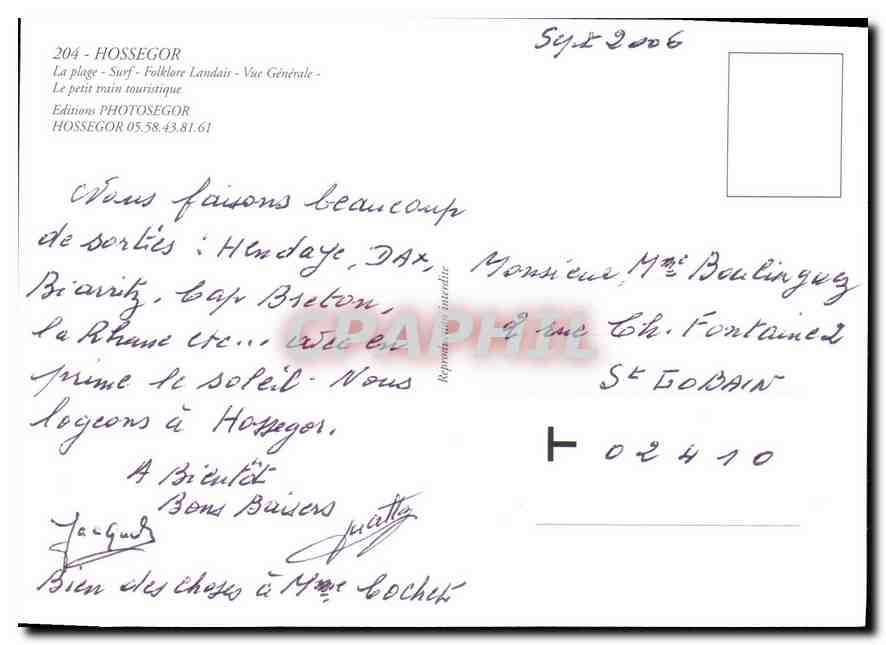 204 - HOSSEGOR
La plage - Surf - Folklore Landais - Vue Générale -
Le petit train touristique
Editions PHOTOSEGOR
HOSSEGOR 05.58.43.81.61
Sept 2006
Nous faisons beaucoup
de sorties : Hendaye, DAx,
Biarritz, Cap Breton,
la Rhune etc... avec en
prime le soleil. Nous
logeons à Hossegor.
A Bientôt
Bons Baisers
Jacques
Bien des choses à Mme Cochet
Reproduction interdite
Monsieur, Mme Boulinguez
2 rue Ch. Fontaine
St GOBAIN
T 02410
CPAPHIL